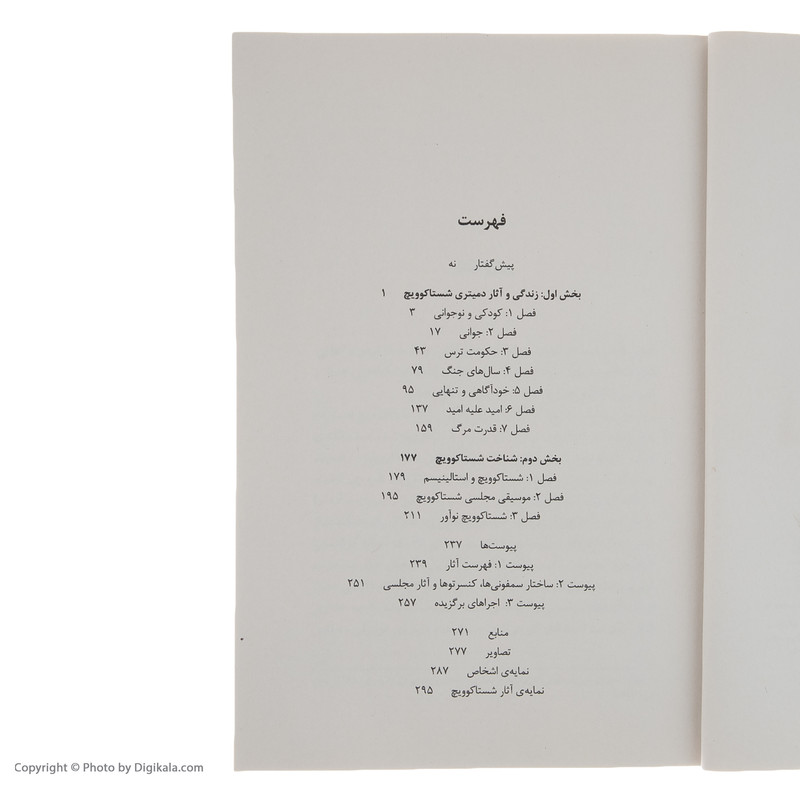 فهرست
پیش‌گفتار نه
بخش اول: زندگی و آثار دمیتری شستاکوویچ ۱
فصل ۱: کودکی و نوجوانی ۳
فصل ۲: جوانی ۱۷
فصل ۳: حکومت ترس ۴۳
فصل ۴: سال‌های جنگ ۷۹
فصل ۵: خودآگاهی و تنهایی ۹۵
فصل ۶: امید علیه امید ۱۳۷
فصل ۷: قدرت مرگ ۱۵۹
بخش دوم: شناخت شستاکوویچ ۱۷۷
فصل ۱: شستاکوویچ و استالینیسم ۱۷۹
فصل ۲: موسیقی مجلسی شستاکوویچ ۱۹۵
فصل ۳: شستاکوویچ نوآور ۲۱۱
پیوست‌ها ۲۳۷
پیوست ۱: فهرست آثار ۲۳۹
پیوست ۲: ساختار سمفونی‌ها، کنسرتوها و آثار مجلسی ۲۵۱
پیوست ۳: اجراهای برگزیده ۲۵۷
منابع ۲۷۱
تصاویر ۲۷۷
نمایه‌ی اشخاص ۲۸۷
نمایه‌ی آثار شستاکوویچ ۲۹۵
Copyright © Photo by Digikala.com